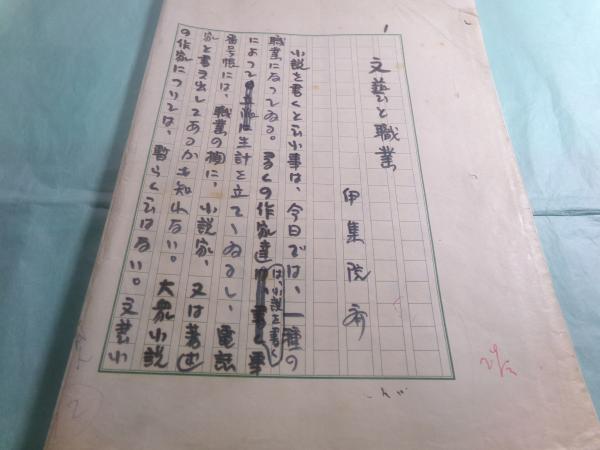 1
文藝と職業
伊集院斉
小説を書くと云ふ事は、今日では、一種の
職業になつてゐる。多くの作家達は、小説を書く事
によつて生計を立てゝゐるし、電話
番号帳には、職業の欄に、小説家、又は著述
家と書き出してあるかも知れない。大衆小説
の作家については、暫らく云はない。文藝小